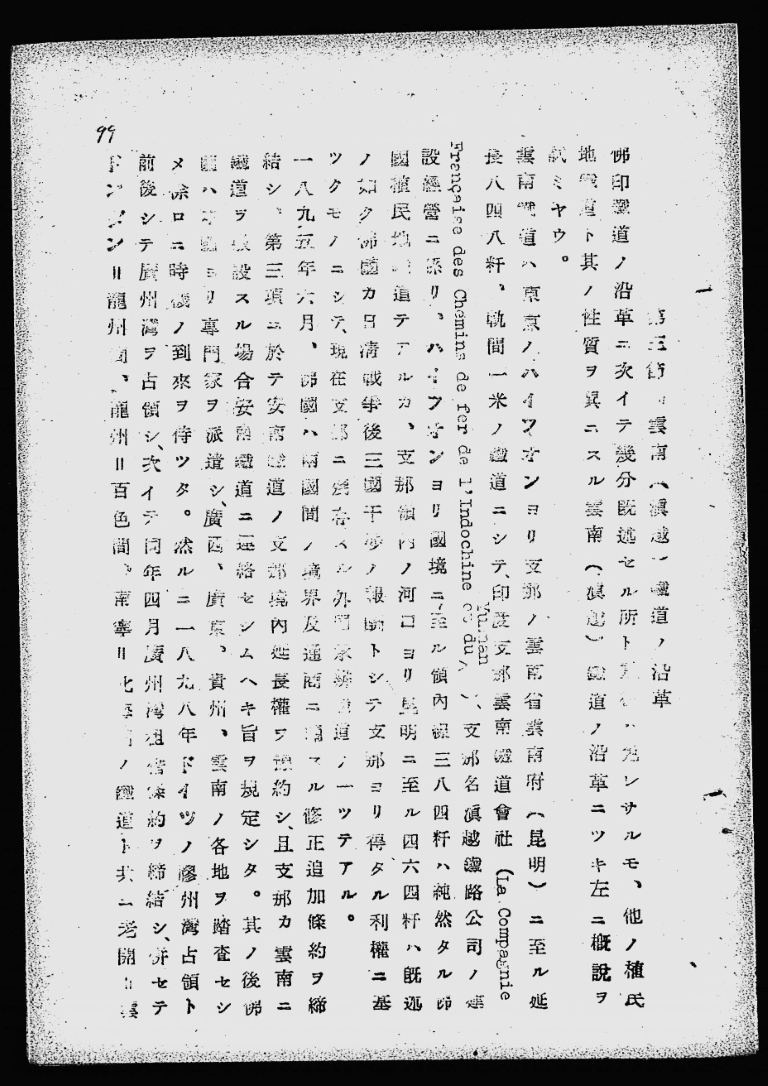 99
第三節 雲南(滇越)鐵道ノ沿革
佛印鐵道ノ沿革ニ次イテ幾分既述セル所ト ンサルモ、他ノ植民
地鐵道ト其ノ性質ヲ異ニスル雲南(滇越)鐵道ノ沿革ニツキ左ニ概說ヲ
試ミヤウ。
雲南鐵道ハ東京ノハイフオンヨリ支那ノ雲南省雲南府(昆明)ニ至ル延
長八四八粁、軌間一米ノ鐵道ニシテ、印度支那雲南鐵道會社(La Compagnie
Française des Chemins de fer de l'Indochine et du Yunnan)、支那名滇越鐵路公司ノ建
設經營ニ係リ、ハイフオンヨリ國境ニ至ル領內線三八四粁ハ純然タル佛
國植民地鐵道テアルカ、支那領內ノ河口ヨリ昆明ニ至ル四六四粁ハ既述
ノ如ク佛國カ日淸戰爭後三國干涉ノ報酬トシテ支那ヨリ得タル利權ニ基
ツクモノニシテ、現在支那ニ現存スル外國 鐵道ノ一ツテアル。
一八九五年六月、佛國ハ兩國間ノ境界及通商ニ關スル修正追加條約ヲ締
結シ、第三項ニ於テ安南鐵道ノ支那境內延長權ヲ豫約シ、且支那カ雲南ニ
鐵道ヲ敷設スル場合安南鐵道ニ連絡セシムヘキ旨ヲ規定シタ。其ノ後佛
國ハ本國ヨリ專門家ヲ派遣シ、廣西、廣東、貴州、雲南ノ各地ヲ踏査セシ
メ徐ロニ時機ノ到來ヲ待ツタ。然ルニ一八九八年ドイツノ膠州灣占領ト
前後シテ廣州灣ヲ占領シ、次イテ同年四月廣州灣租借條約ヲ締結シ、併セテ
ドンダン=龍州間、龍州=百色間、南寧=北海間ノ鐵道ト共ニ老開=雲